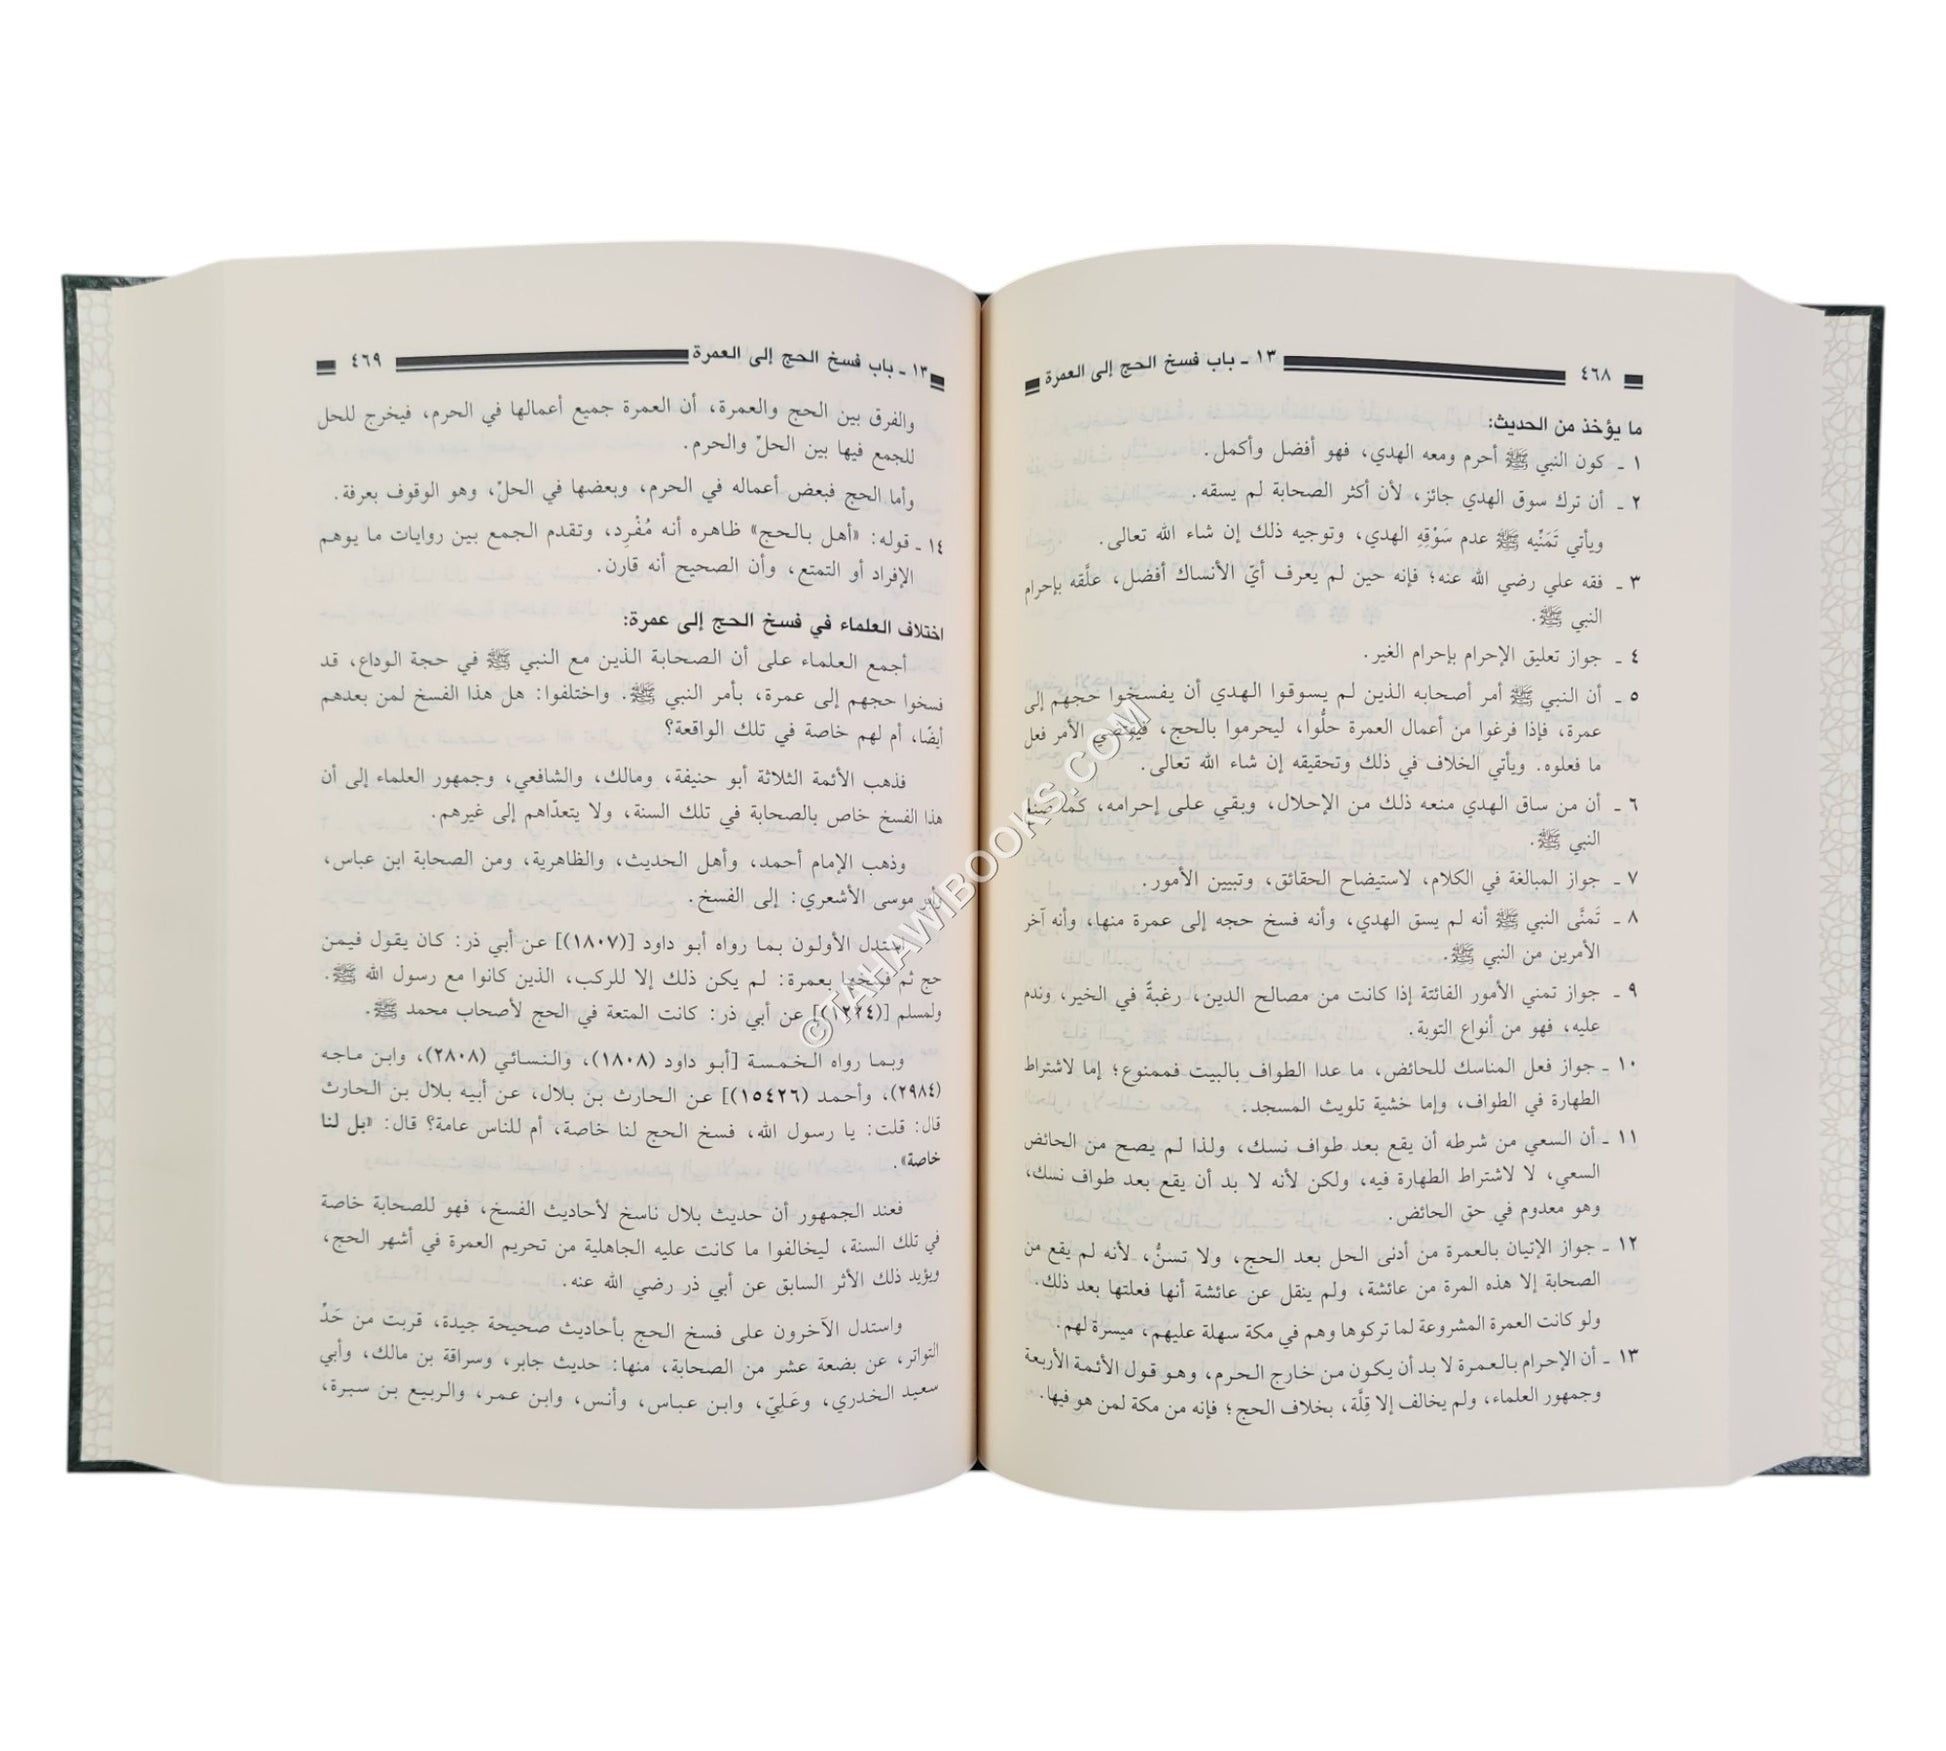 ٤٦٨ ١٣ ـ باب فسخ الحج إلى العمرة
ما يؤخذ من الحديث:
١ ـ كون النبي ﷺ أحرم ومعه الهدي، فهو أفضل وأكمل.
٢ ـ أن ترك سوق الهدي جائز، لأن أكثر الصحابة لم يسقه.
ويأتي تَمَنِّيه ﷺ عدم سَوْقِهِ الهدي، وتوجيه ذلك إن شاء الله تعالى.
٣ ـ فقه علي رضي الله عنه؛ فإنه حين لم يعرف أيّ الأنساك أفضل، علَّقه بإحرام
النبي ﷺ.
٤ ـ جواز تعليق الإحرام بإحرام الغير.
٥ ـ أن النبي ﷺ أمر أصحابه الذين لم يسوقوا الهدي أن يفسخوا حجهم إلى
عمرة، فإذا فرغوا من أعمال العمرة حلُّوا، ليحرموا بالحج، فيقتضي الأمر فعل
ما فعلوه. ويأتي الخلاف في ذلك وتحقيقه إن شاء الله تعالى.
٦ ـ أن من ساق الهدي منعه ذلك من الإحلال، وبقي على إحرامه، كما صنع
النبي ﷺ.
٧ ـ جواز المبالغة في الكلام، لاستيضاح الحقائق، وتبيين الأمور.
٨ ـ تَمنَّى النبي ﷺ أنه لم يسق الهدي، وأنه فسخ حجه إلى عمرة منها، وأنه آخر
الأمرين من النبي ﷺ.
٩ ـ جواز تمني الأمور الفائتة إذا كانت من مصالح الدين، رغبةً في الخير، وندم
عليه، فهو من أنواع التوبة.
١٠ ـ جواز فعل المناسك للحائض، ما عدا الطواف بالبيت فممنوع؛ إما لاشتراط
الطهارة في الطواف، وإما خشية تلويث المسجد.
١١ ـ أن السعي من شرطه أن يقع بعد طواف نسك، ولذا لم يصح من الحائض
السعي، لا لاشتراط الطهارة فيه، ولكن لأنه لا بد أن يقع بعد طواف نسك،
وهو معدوم في حق الحائض.
١٢ ـ جواز الإتيان بالعمرة من أدنى الحل بعد الحج، ولا تسنُّ، لأنه لم يقع من
الصحابة إلا هذه المرة من عائشة، ولم ينقل عن عائشة أنها فعلتها بعد ذلك.
ولو كانت العمرة المشروعة لما تركوها وهم في مكة سهلة عليهم، ميسرة لهم.
١٣ ـ أن الإحرام بالعمرة لا بد أن يكون من خارج الحرم، وهو قول الأئمة الأربعة
وجمهور العلماء، ولم يخالف إلا قِلَّة، بخلاف الحج؛ فإنه من مكة لمن هو فيها.
١٣ ـ باب فسخ الحج إلى العمرة ٤٦٩
والفرق بين الحج والعمرة، أن العمرة جميع أعمالها في الحرم، فيخرج للحل
للجمع فيها بين الحلِّ والحرم.
وأما الحج فبعض أعماله في الحرم، وبعضها في الحلّ، وهو الوقوف بعرفة.
١٤ ـ قوله: «أهل بالحج» ظاهره أنه مُفْرِد، وتقدم الجمع بين روايات ما يوهم
الإفراد أو التمتع، وأن الصحيح أنه قارن.
اختلاف العلماء في فسخ الحج إلى عمرة:
أجمع العلماء على أن الصحابة الذين مع النبي ﷺ في حجة الوداع، قد
فسخوا حجهم إلى عمرة، بأمر النبي ﷺ. واختلفوا: هل هذا الفسخ لمن بعدهم
أيضًا، أم لهم خاصة في تلك الواقعة؟
فذهب الأئمة الثلاثة أبو حنيفة، ومالك، والشافعي، وجمهور العلماء إلى أن
هذا الفسخ خاص بالصحابة في تلك السنة، ولا يتعدّاهم إلى غيرهم.
وذهب الإمام أحمد، وأهل الحديث، والظاهرية، ومن الصحابة ابن عباس،
وأبو موسى الأشعري: إلى الفسخ.
استدل الأولون بما رواه أبو داود [(١٨٠٧)] عن أبي ذر: كان يقول فيمن
حج ثم فسخها بعمرة: لم يكن ذلك إلا للركب، الذين كانوا مع رسول الله ﷺ.
ولمسلم [(١٢٢٤)] عن أبي ذر: كانت المتعة في الحج لأصحاب محمد ﷺ.
وبما رواه الخمسة [أبو داود (١٨٠٨)، والنسائي (٢٨٠٨)، وابن ماجه
(٢٩٨٤)، وأحمد (١٥٤٢٦)] عن الحارث بن بلال، عن أبيه بلال بن الحارث
قال: قلت: يا رسول الله، فسخ الحج لنا خاصة، أم للناس عامة؟ قال: «بل لنا
خاصة».
فعند الجمهور أن حديث بلال ناسخ لأحاديث الفسخ، فهو للصحابة خاصة
في تلك السنة، ليخالفوا ما كانت عليه الجاهلية من تحريم العمرة في أشهر الحج،
ويؤيد ذلك الأثر السابق عن أبي ذر رضي الله عنه.
واستدل الآخرون على فسخ الحج بأحاديث صحيحة جيدة، قربت من حَدِّ
التواتر، عن بضعة عشر من الصحابة، منها: حديث جابر، وسراقة بن مالك، وأبي
سعيد الخدري، وعَليّ، وابن عباس، وأنس، وابن عمر، والربيع بن سبرة،
©TAHAWIBOOKS.COM